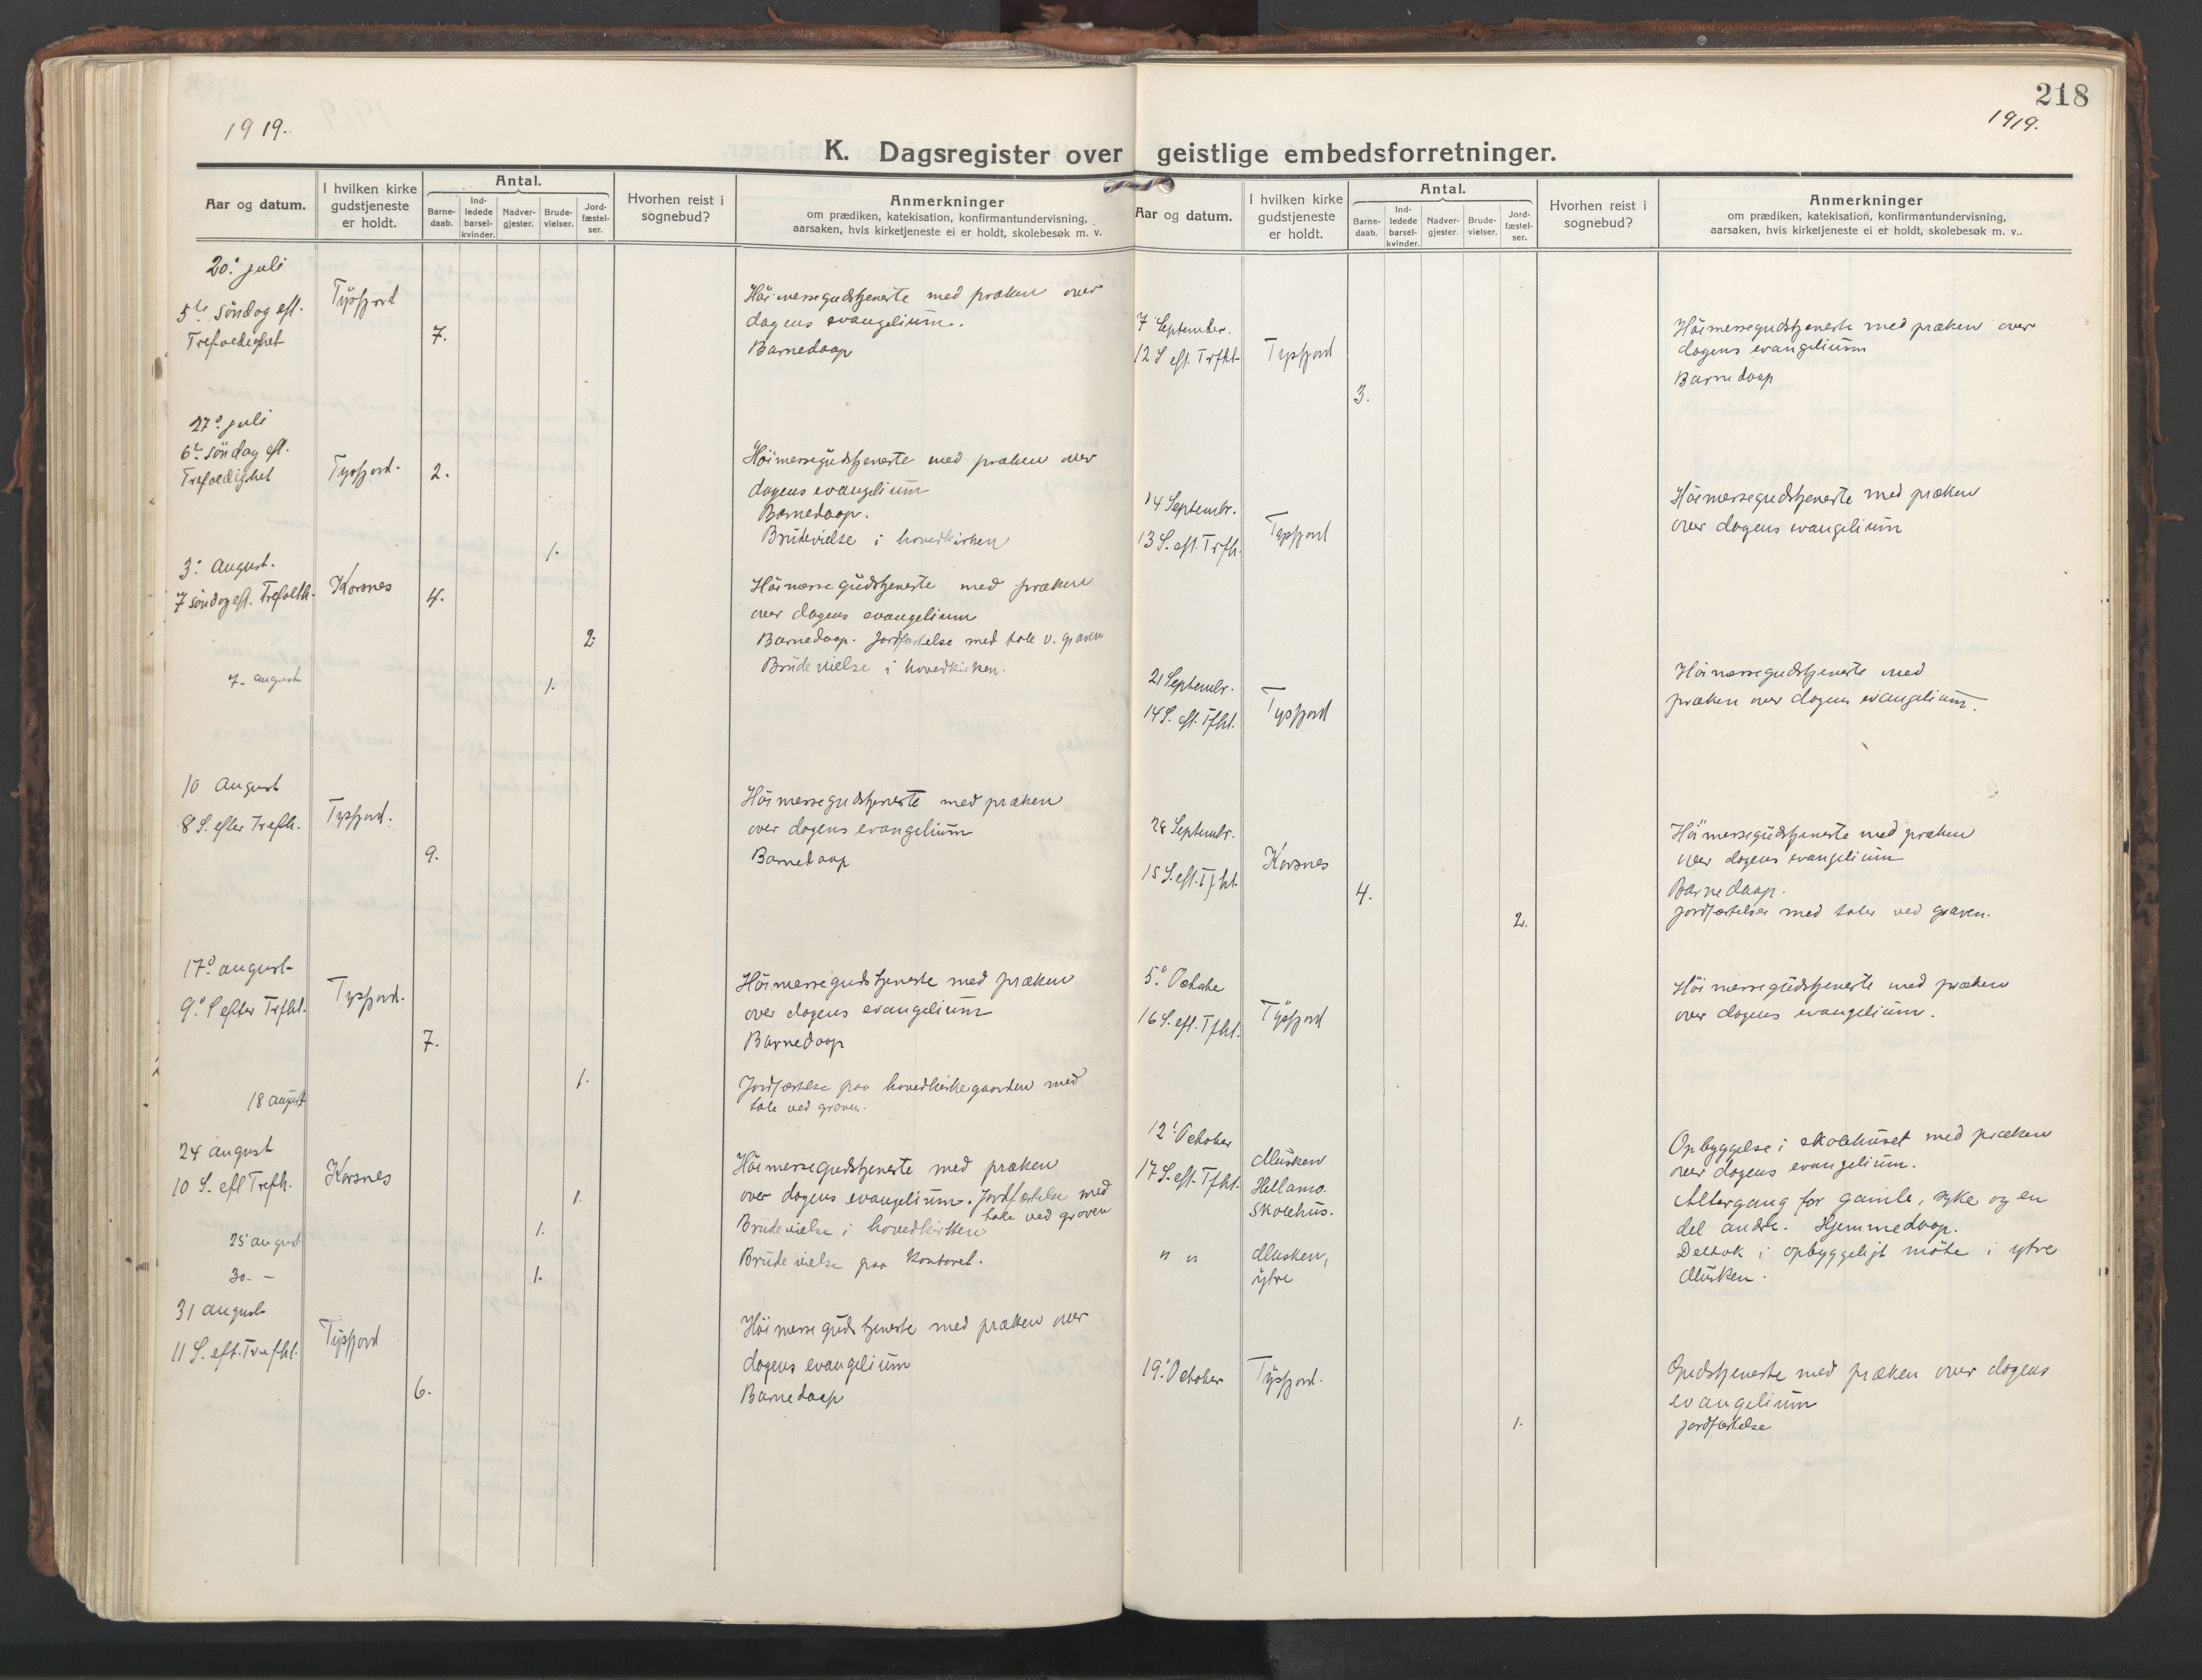 218
1919.
1919.
K. Dagsregister over geistlige embedsforretninger.
Aar og datum.
I hvilken kirke gudstjeneste er holdt.
Antal.
Barne-daab.
Ind-ledede barsel-kvinder.
Nadver-gjester.
Brude-vielser.
Jord-fæstel-ser.
Hvorhen reist i sognebud?
Anmerkninger
om prædiken, katekisation, konfirmantundervisning,
aarsaken, hvis kirketjeneste ei er holdt, skolebesøk m. v.
20. juli
5te søndag eft. Tysfjord
Trefoldighet 7.
Høimessegudstjeneste med præken over
dagens evangelium.
Barnedaap
27. juli
6te søndag eft.
Trefoldighet Tysfjord. 2.
Høimessegudstjeneste med præken over
dagens evangelium
Barnedaap.
1. Brudevielse i hovedkirken
3. august.
7 søndag eft. Trefoldh. Korsnes 4.
Høimessegudstjeneste med præken
over dagens evangelium
2. Barnedaap. Jordfæstelse med tale v. graven
7. august 1. Brudevielse i hovedkirken.
10 august
8 S. efter Trefh. Tysfjord.
9.
Høimessegudstjeneste med præken
over dagens evangelium
Barnedaap
17. august
9. S efter Trfht. Tysfjord.
7.
Høimessegudstjeneste med præken
over dagens evangelium
Barnedaap
18 august 1. Jordfæstelse paa hovedkirkegaarden med
tale ved graven.
24 august
10 S. eft Trefh. Korsnes 1.
Høimessegudstjeneste med præken
over dagens evangelium. Jordfæstelse med
tale ved graven
25 august 1. Brudevielse i hovedkirken
30. - 1. Brudevielse paa kontoret.
31 august
11 S. eft. Trefht. Tysfjord
6.
Høimessegudstjeneste med præken over
dagens evangelium
Barnedaap
Aar og datum.
I hvilken kirke gudstjeneste er holdt.
Antal.
Barne-daab.
Ind-ledede barsel-kvinder.
Nadver-gjester.
Brude-vielser.
Jord-fæstel-ser.
Hvorhen reist i sognebud?
Anmerkninger
om prædiken, katekisation, konfirmantundervisning,
aarsaken, hvis kirketjeneste ei er holdt, skolebesøk m. v..
7 September.
12 S eft. Trfht Tysfjord
3.
Høimessegudstjeneste med præken over
dagens evangelium
Barnedaap
14 Septembr.
13 S. eft. Trfh. Tysfjord
Høimessegudstjeneste med præken
over dagens evangelium
21 Septembr.
14 S. eft. Tfht. Tysfjord
Høimessegudstjeneste med
præken over dagens evangelium.
28 Septembr.
15 S. eft. Tfht. Korsnes
4.
2.
Høimessegudstjeneste med præken
over dagens evangelium
Barnedaap.
Jordfæstelser med taler ved graven.
5. Octobe
16 S. eft. Tfht. Tysfjord
Høimessegudstjeneste med præken
over dagens evangelium.
12. October
17 S. eft. Tfht. Musken
Hellamo.
Skolehus.
Opbyggelse i skolehuset med præken
over dagens evangelium.
Altergang for gamle, syke og en
del andre. Hjemmedaap.
" " Musken,
ytre
Deltok i opbyggeligt møte i ytre
Musken.
19. October Tysfjord.
1.
Gudstjeneste med præken over dagens
evangelium
Jordfæstelse